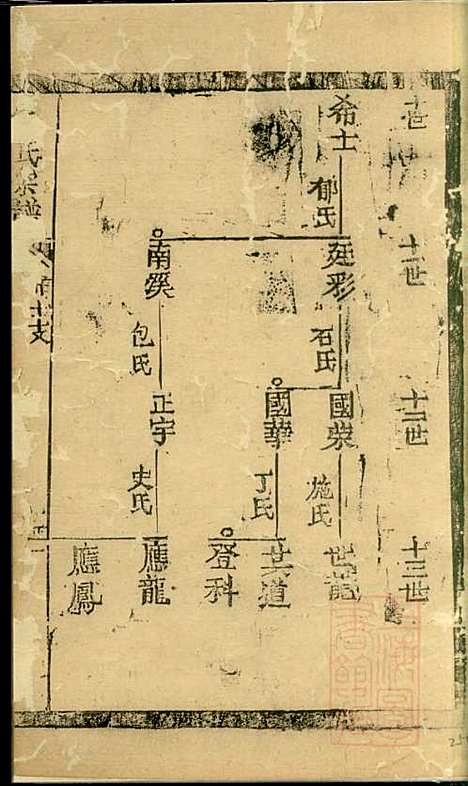 十世
希士
郁氏
十一世
廷彩
石氏
南溪
包氏
十二世
國榮
施氏
國華
丁氏
正宇
史氏
十三世
世龍
世道
登科
應龍
應鳳
氏宗譜